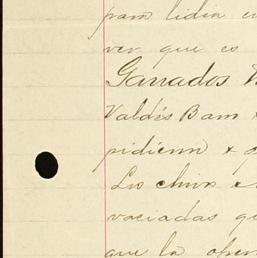 para lidia en
ver que es
Ganados
Valdés Bam
pidieron x
Los chivos
vaciadas qu
que la oper